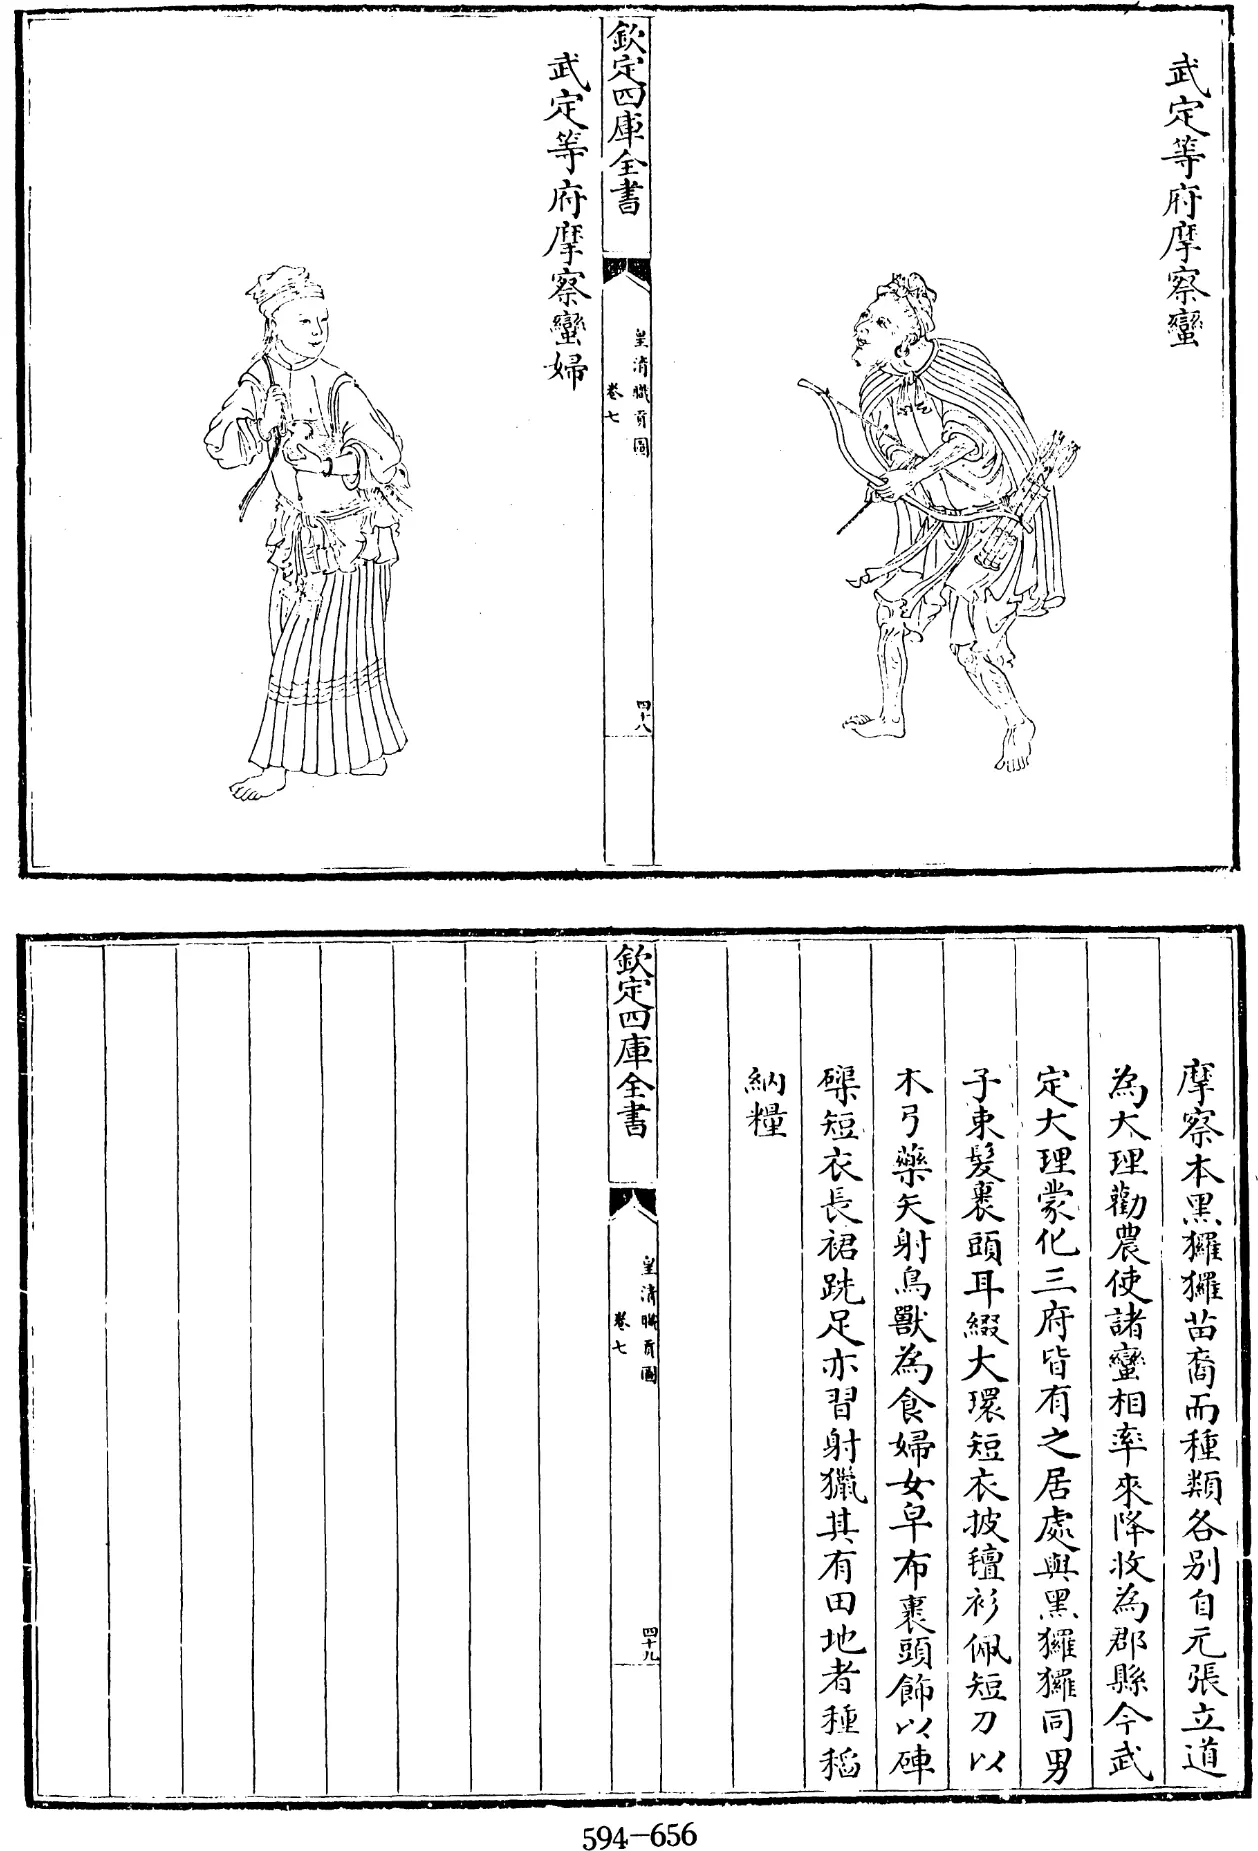 武定等府摩察蠻
欽定四庫全書
皇清職貢圖
卷七
四十八
武定等府摩察蠻婦
摩察本黑玀玀苗裔而種類各別自元張立道
為大理勸農使諸蠻相率來降收為郡縣今武
定大理蒙化三府皆有之居處與黑玀玀同男
子束髮裹頭耳綴大環短衣披氊衫佩短刀以
木弓藥矢射鳥獸為食婦女皁布裹頭飾以硨
磲短衣長裙跣足亦習射獵其有田地者種稻
納糧
欽定四庫全書
皇清職貢圖
卷七
四十九
594-656